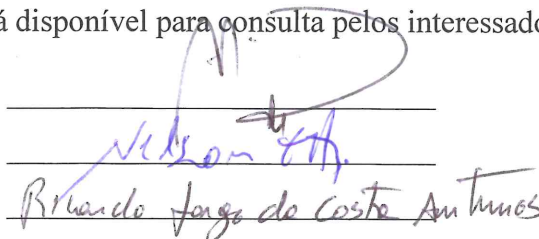 á disponível para consulta pelos interessado
Nelson
Ricardo Jorge da Costa Antunes